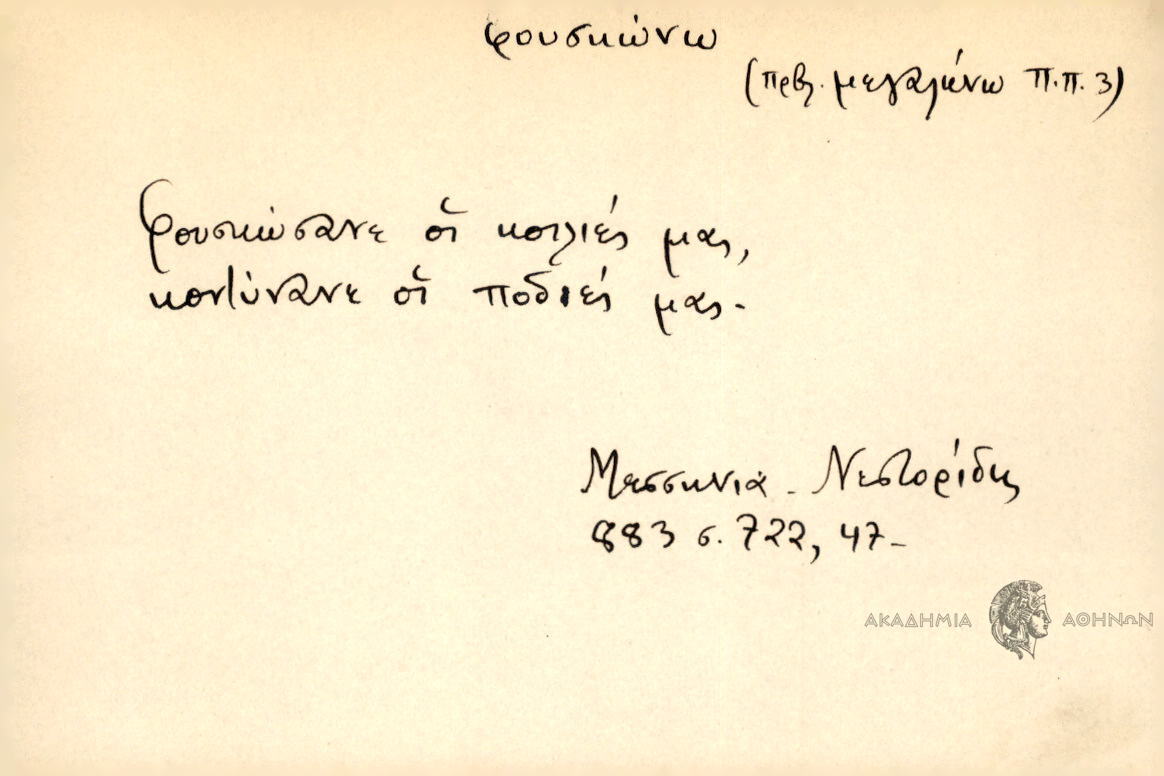 φουσκώνω
(πρβ. μεγαλώνω Π.π. 3)
Φουσκώσανε οἵ κοιλιές μας,
κοντύνανε οἵ ποδιές μας.
Μεσσηνία - Νεστορίδης
883 σ. 722, 47-
ΑΚΑΔΗΜΙΑ ΑΘΗΝΩΝ